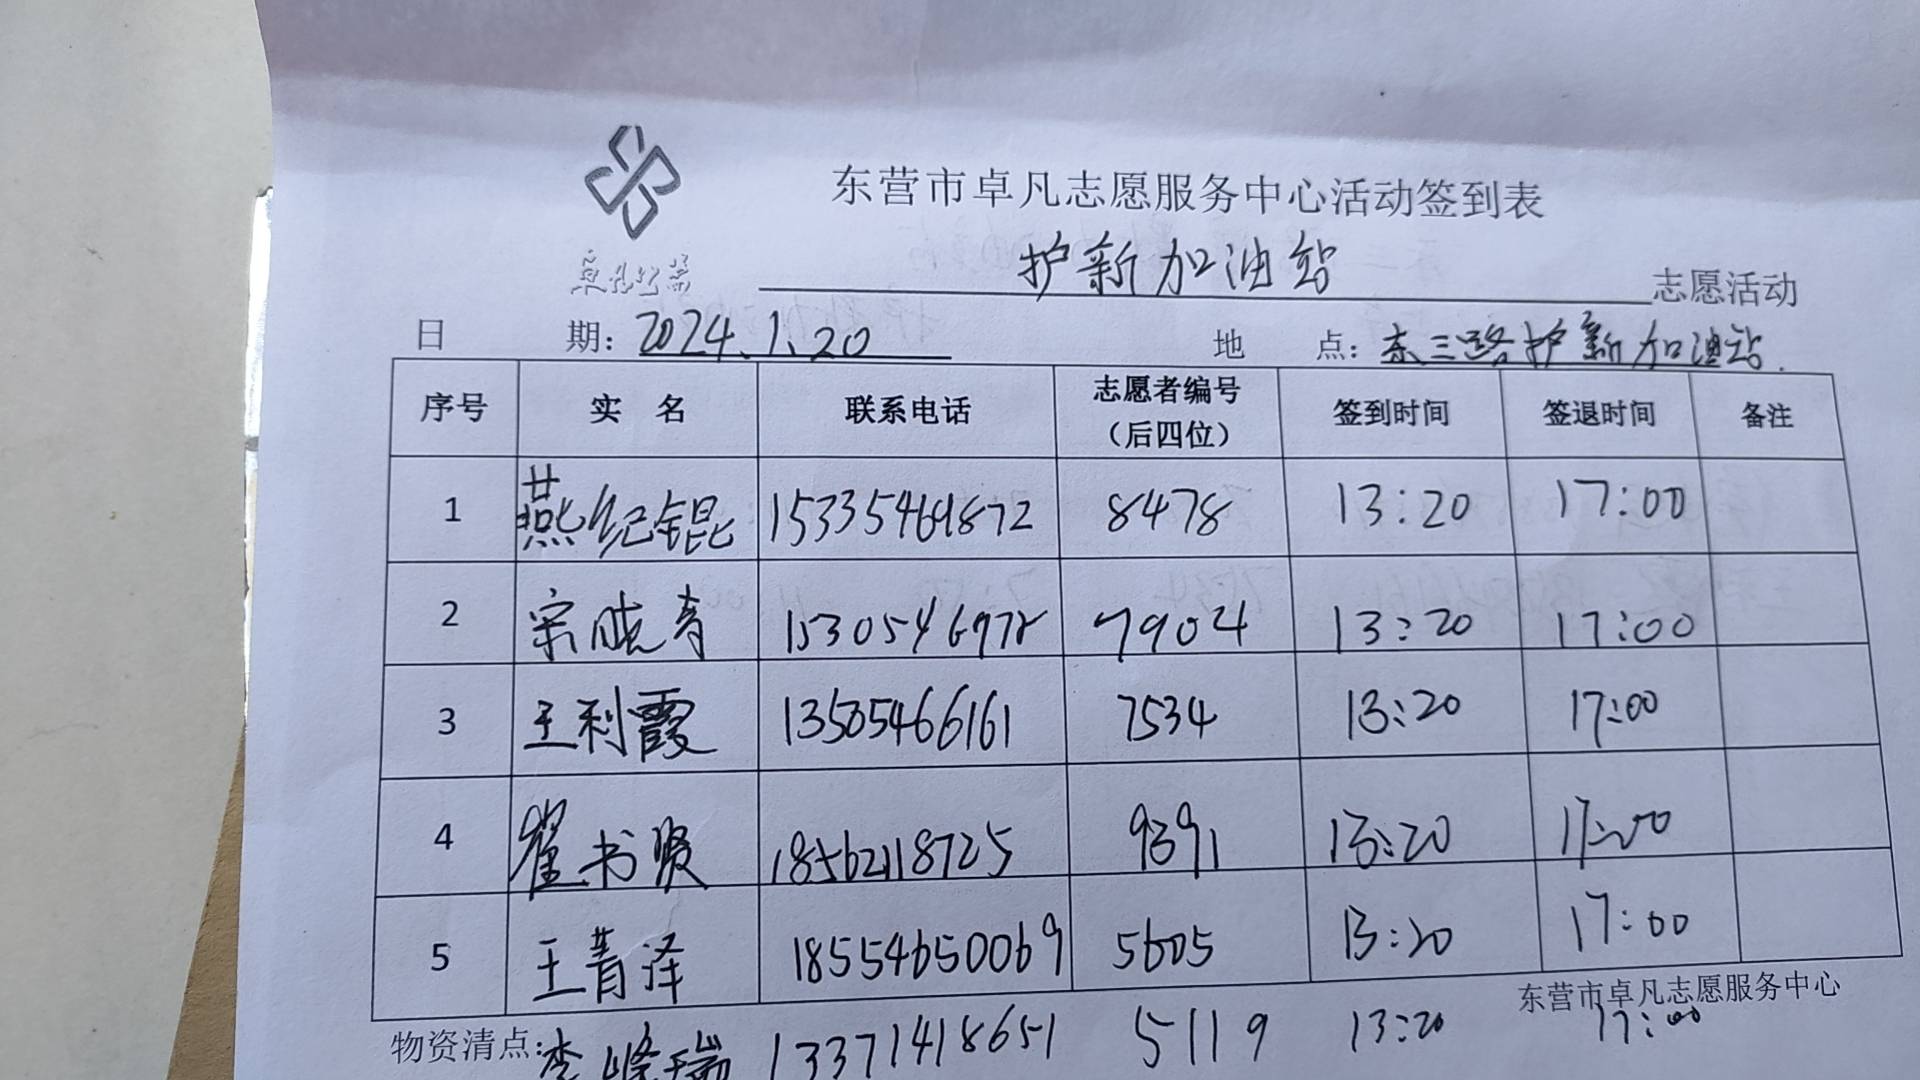 东营市卓凡志愿服务中心活动签到表
卓凡公益
护新加油站 志愿活动
日 期: 2024.1.20 地 点: 东三路护新加油站.
序号 实 名 联系电话 志愿者编号（后四位） 签到时间 签退时间 备注
1 燕纪锟 15335469872 8478 13:20 17:00
2 宗晓青 7904 13:20 17:00
3 王利霞 13505466161 7534 13:20 17:00
4 翟书贤 18562118725 9391 13:20 17:00
5 王菁泽 18554650069 5605 13:20 17:00
东营市卓凡志愿服务中心
物资清点: 李峰瑞 13371418651 5119 13:20 17:00